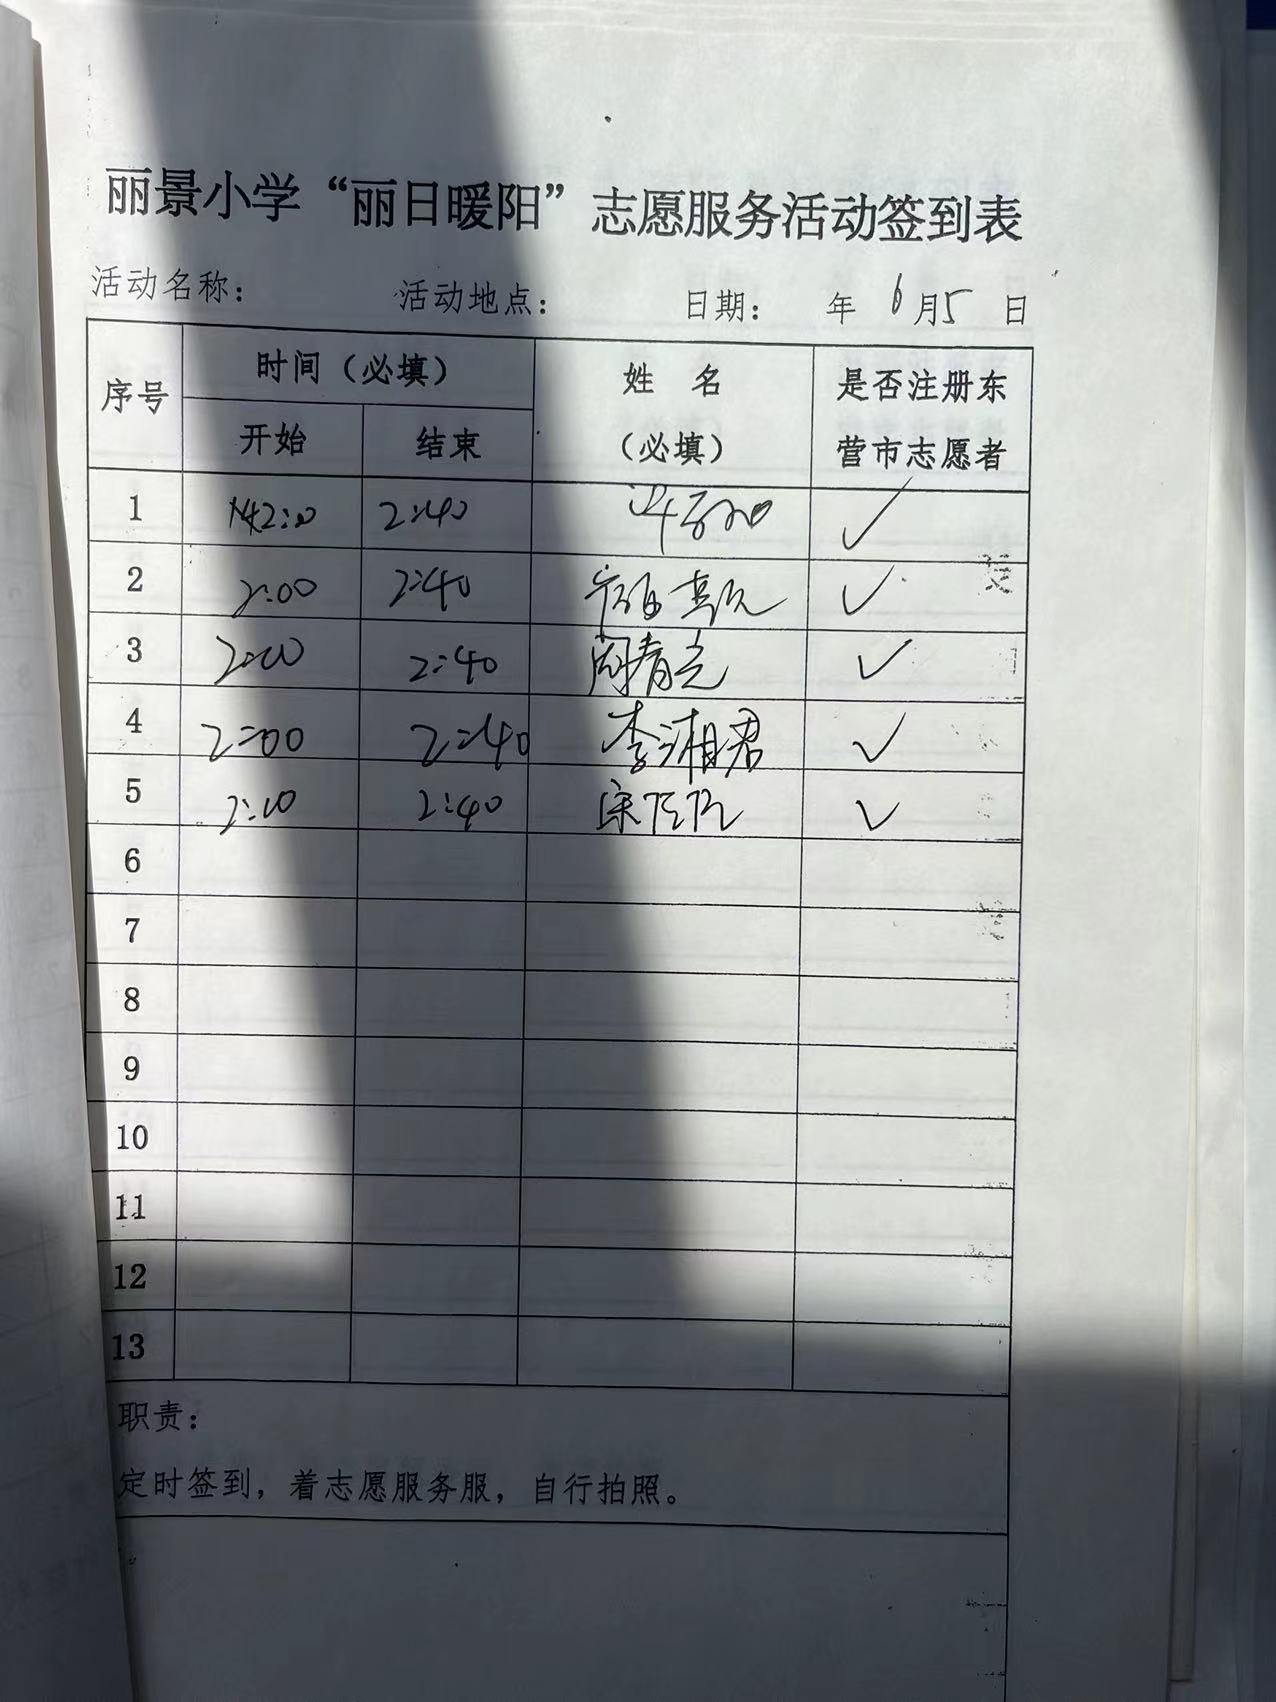 丽景小学“丽日暖阳”志愿服务活动签到表
活动名称: 活动地点: 日期: 年 6月5 日
序号 时间（必填） 姓 名（必填） 是否注册东营市志愿者
开始 结束
1 2:40 ✓
2 2:00 2:40 ✓
3 2:00 2:40 ✓
4 2:00 2:40 李湘君 ✓
5 2:00 2:40 ✓
6
7
8
9
10
11
12
13
职责:
定时签到，着志愿服务服，自行拍照。